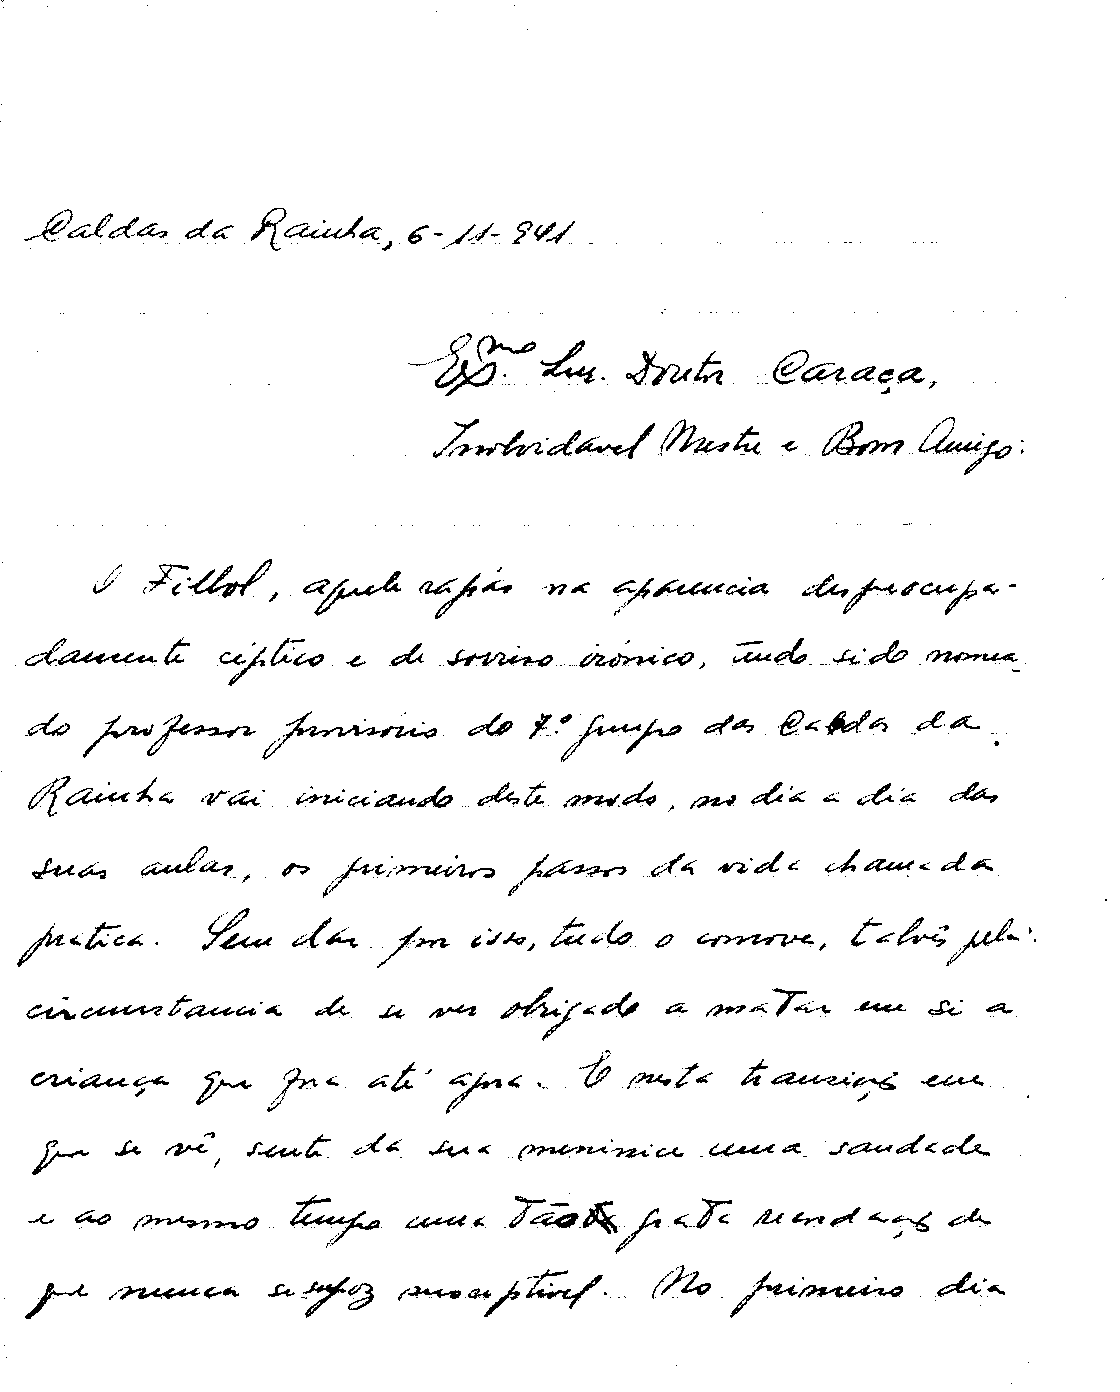 Caldas da Rainha, 6-11-941
Exmo. Snr. Doutor Caraça,
Inolvidavel Mestre e Bom Amigo:
O Filhol, aquele rapás na aparencia despreocupa-
damente céptico e de sorriso irónico, tendo sido nomea-
do professor provisório do 7º grupo das Caldas da
Rainha vai iniciando deste modo, no dia a dia das
suas aulas, os primeiros passos da vida chamada
pratica. Sem dar por isso, tudo o comove, talvês pela
circunstancia de se ver obrigado a matar em si a
criança que fora até agora. E nesta transição em
que se vê, sente da sua meninice uma saudade
e ao mesmo tempo uma tão grata recordação de
que nunca se supoz susceptivel. No primeiro dia